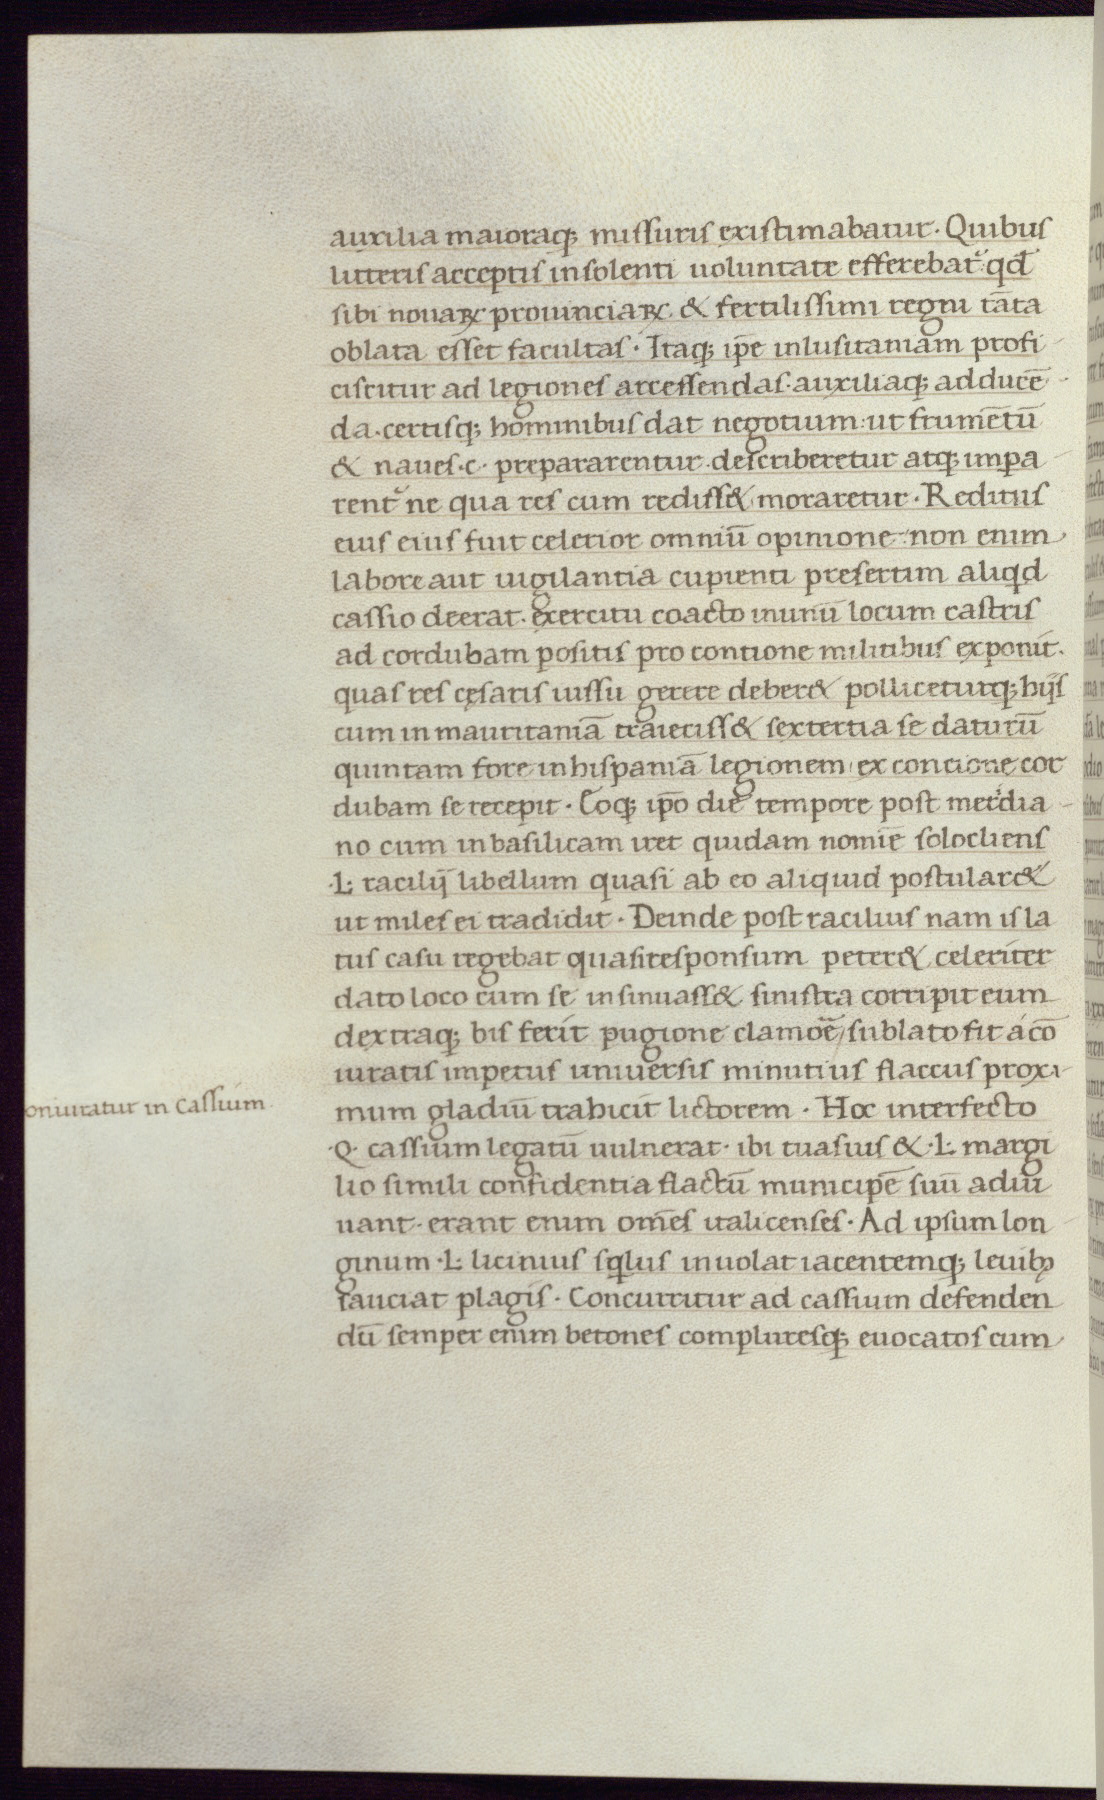 auxilia maioraq; missuris existimabatur. Quibus
litteris acceptis insolenti uoluntate efferebat̉: qđ
sibi nouaꝝ prouinciaꝝ & fertilissimi regni tāta
oblata esset facultas. Itaq; ip̄e inlusitaniam profi
ciscitur ad legiones arcessendas. auxiliaq; adducē
da. certisq; hominibus dat negotium: ut frumētū
& naues .c. prepararentur. describeretur atq; impa
rent̉ ne qua res cum rediss& moraretur. Reditus
eius eius fuit celerior omniū opinione. non enim
labore aut uigilantia cupienti presertim aliqd
cassio deerat. exercitu coacto inunū locum castris
ad cordubam positis pro contione militibus exponit.
quas res cęsaris iussu gerere deber& polliceturq; hijs
cum in mauritaniā traieciss& sextertia se daturū
quintam fore inhispaniā legionem. ex concione cor
dubam se recepit. Eoq; ip̄o die tempore post meridia
no cum inbasilicam iret quidam nomīe solocliens
.L. racilij libellum quasi ab eo aliquid postular&
ut miles ei tradidit. Deinde post racilius nam is la
tus casu tegebat quasi responsum peter& celeriter
dato loco cum se insinuass& sinistra corripit eum
dextraq; bis ferit pugione clamoē / sublato fit a cō
iuratis impetus uniuersis minutius flaccus proxi
mum gladiū trabicit lictorem. Hoc interfecto
.Q. cassium legatū uulnerat. ibi tuasius & .L. margi
lio simili confidentia flactū municipē suū adiu
uant. erant enim om̄es italicenses. Ad ipsum lon
ginum .L. licinius sqlus inuolat iacentemq; leuibꝫ
sauciat plagis. Concurritur ad cassium defenden
dū semper enim betones compluresq; euocatos cum
oniuratur in Cassium